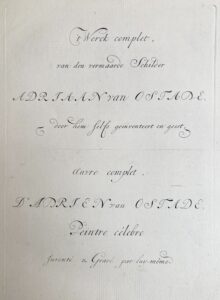 't Werck complet.
van den vermaarde Schilder
ADRIAAN van OSTADE.
door hem selfs geinventeert en geëst
Œuvre complet.
D'ADRIEN van OSTADE.
Peintre célebre
Inventé & Gravé par luy-même.